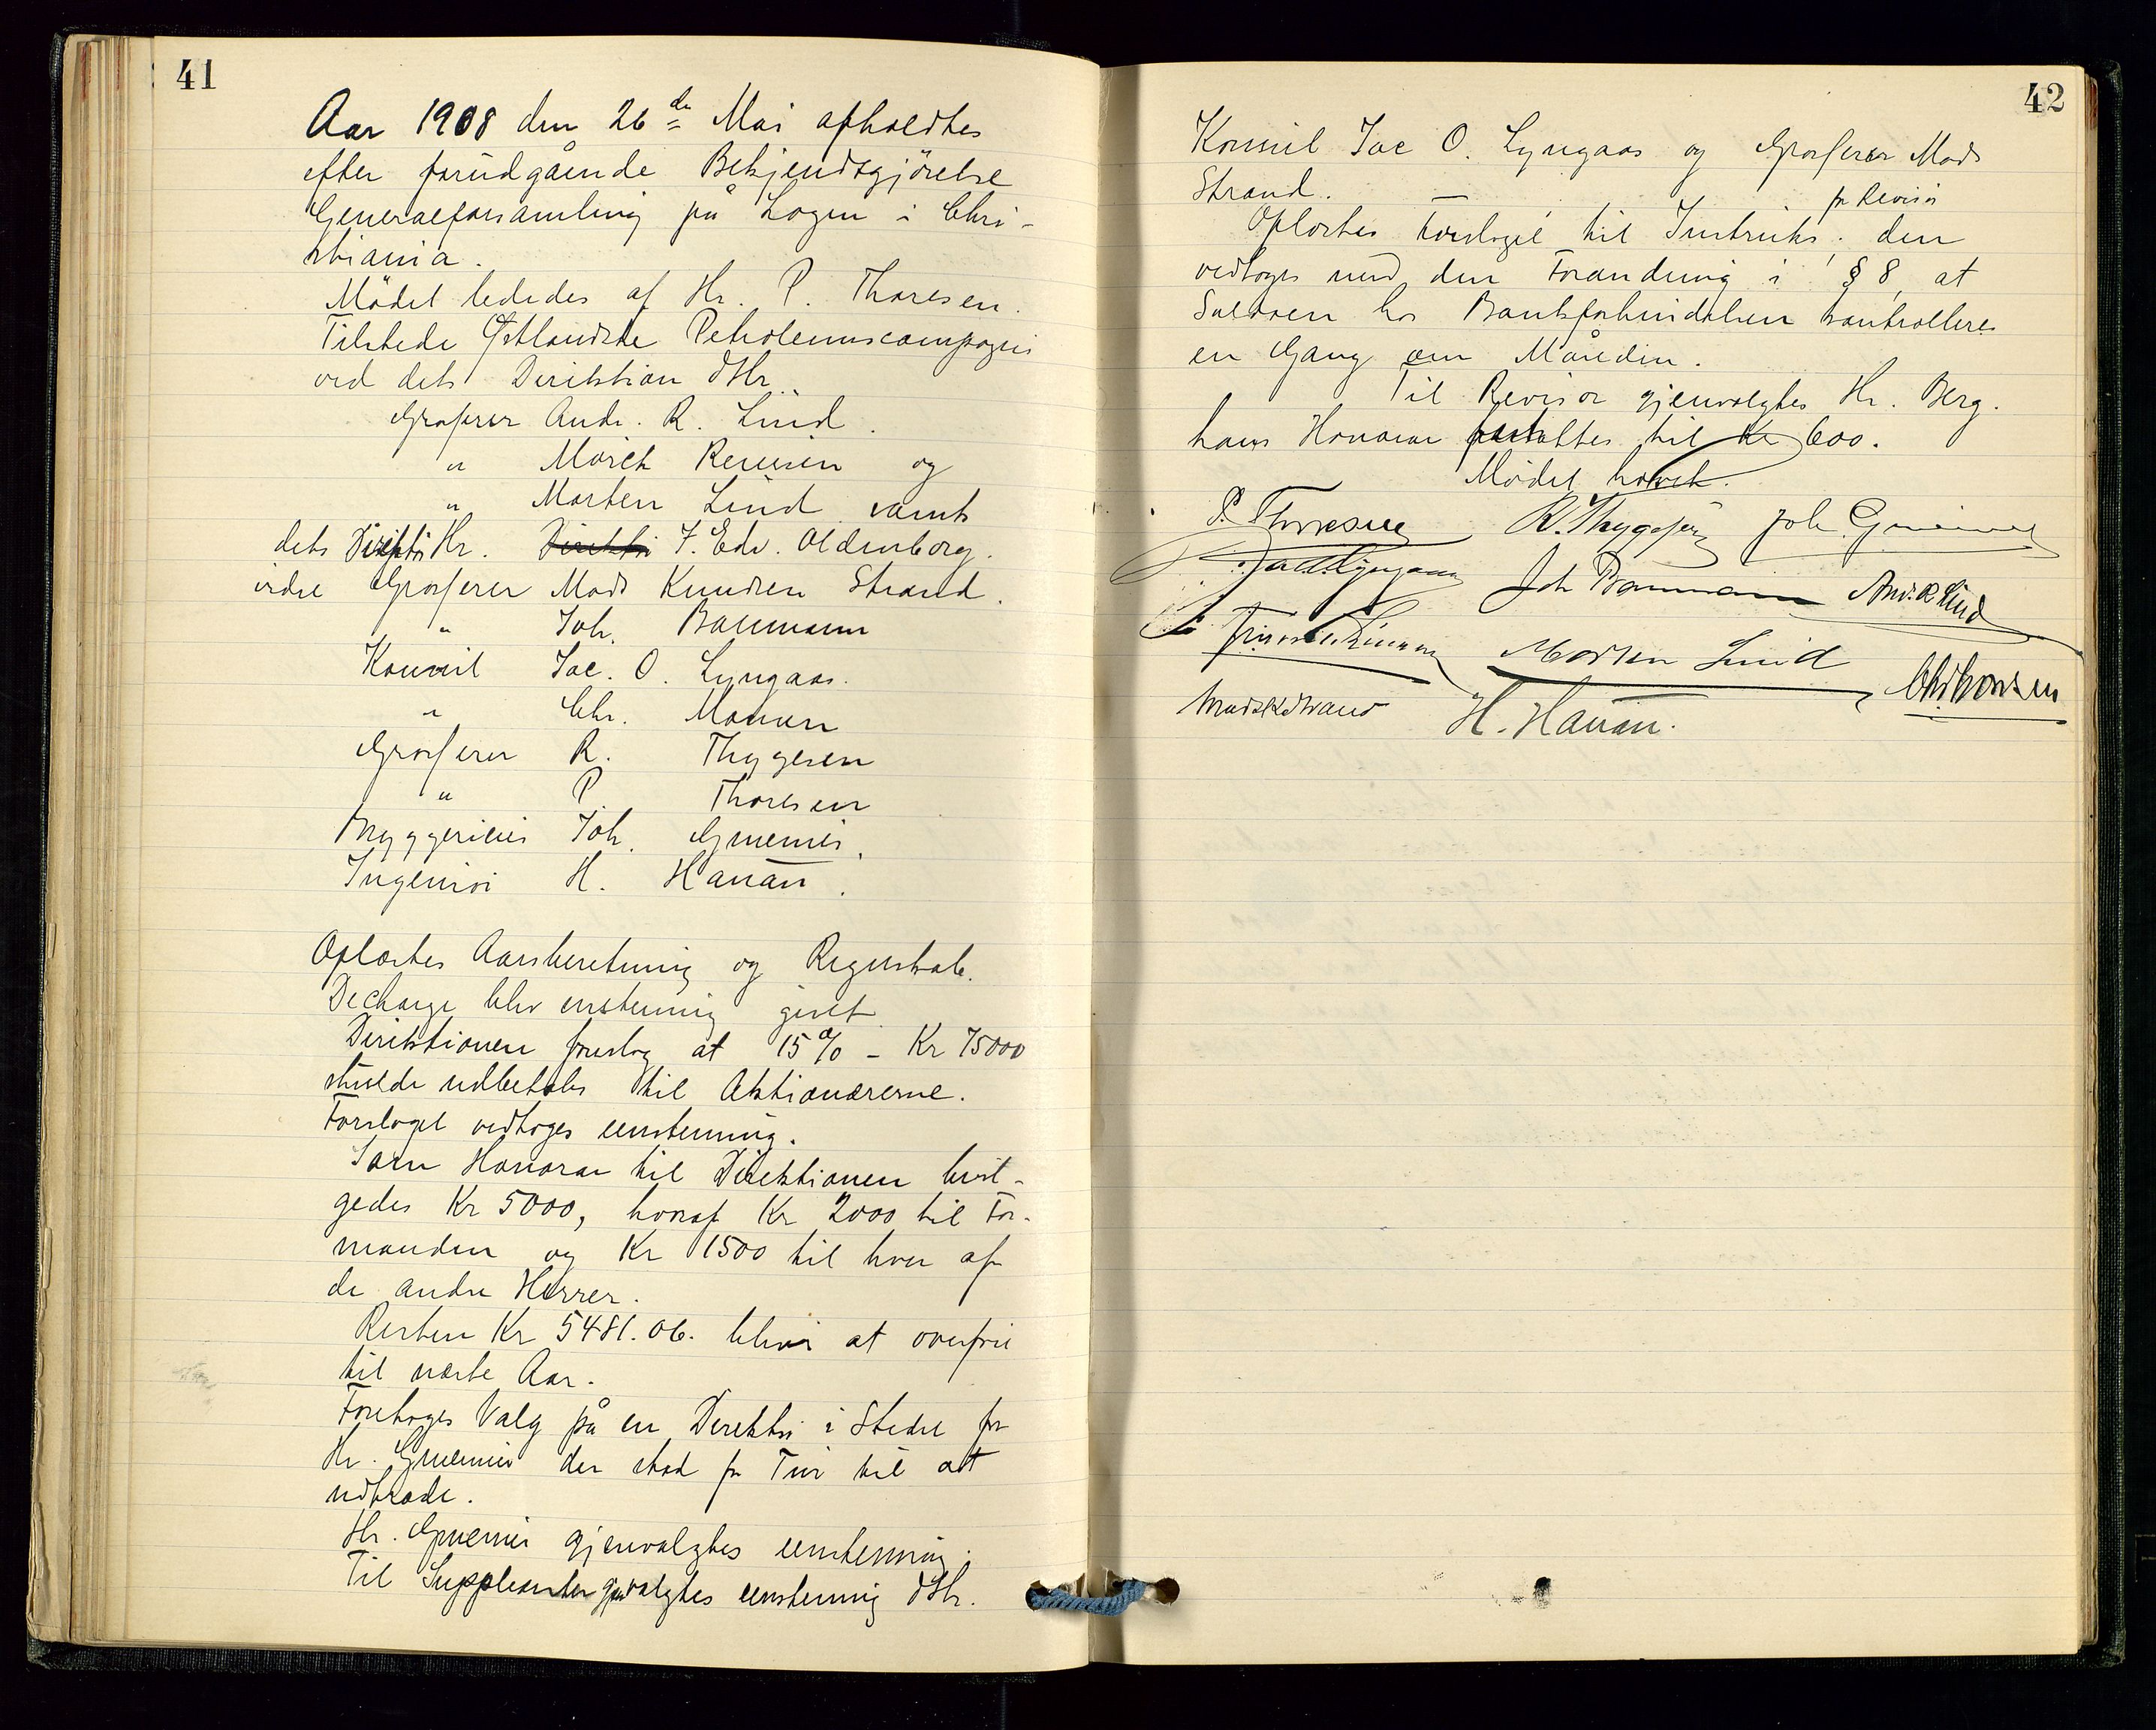 41
Aar 1908 den 26de Mai afholdtes
efter forudgående Bekjendtgjörelse
Generalforsamling på Logen i Chri-
stiania.
Mödet lededes af Hr. P. Thoresen.
Tilstede Østlandske Petroleumscompagni
ved dets Direktion dHr.
Grosserer Andr. R. Lind.
" Mörch Reiersen og
" Morten Lind samt
dets Direktör Hr. Direktör F. Edv. Oldenborg.
videre Grosserer Mads Knudsen Strand.
" Joh. Baumann
Konsul Jac. O. Lyngaas.
" Chr. Monsen
Grosserer R. Thygesen
" P. Thoresen
Byggerieier Joh. Gmeiner.
Ingeniör H. Hauan.
Oplæstes Aarsberetning og Regnskab.
Decharge blev enstemmig givet
Direktionen foreslog at 15% - Kr 75000
skulde udbetales til Aktionærerne.
Forslaget vedtoges eenstemmig.
Som Honorar til Direktionen bevil-
gedes Kr 5000, hvoraf Kr 2000 til For-
manden og Kr 1500 til hver af
de andre Herrer.
Resten Kr 5481.06. bliver at overföre
til næste Aar.
Foretoges Valg på en Direktör i Stedet for
Hr. Gmeiner der stod for Tur til at
udtræde.
Hr. Gmeiner gjenvalgtes eenstemmig.
Til Suppleanter gjenvalgtes eenstemmig dHr.
42
Konsul Jac O. Lyngaas og Grosserer Mads
Strand.
for Revisor
Oplæstes Forslaget til Instruks, den
vedtoges med den Forandring i § 8, at
Saldoen hos Bankforbindelsen kontrolleres
en Gang om Måneden.
Til Revisor gjenvalgtes Hr. Berg.
hans Honorar fastsattes til Kr 600.
Mödet hævet.
P. Thoresen R. Thygesen Joh. Gmeiner
Jac. O. Lyngaas Joh Baumann And. R Lind
Morten Lind Chr. Monsen
Mads K Strand H. Hauan.